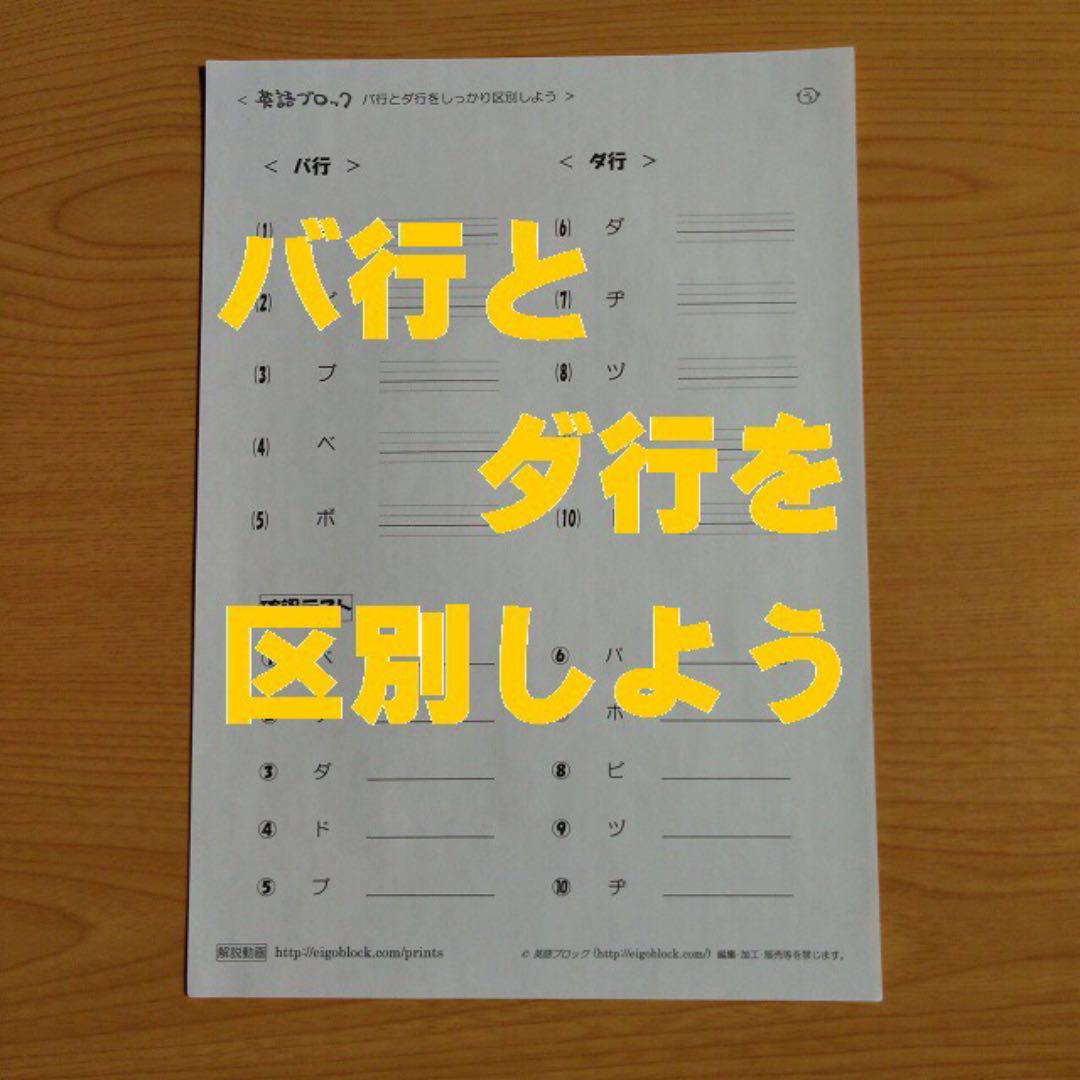 < 英語ブロック バ行とダ行をしっかり区別しよう >
< バ行 >
< ダ行 >
バ行と
ダ行を
区別しよう
(1)
(2)
(3) ブ
(4) ベ
(5) ボ
(6) ダ
(7) ヂ
(8) ヅ
(10)
確認テスト
③ ダ
④ ド
⑤ ブ
⑥ バ
ボ
⑧ ビ
⑨ ヅ
⑩ ヂ
解説動画 http://eigoblock.com/prints
© 英語ブロック (http://eigoblock.com/) 編集・加工・販売等を禁じます。